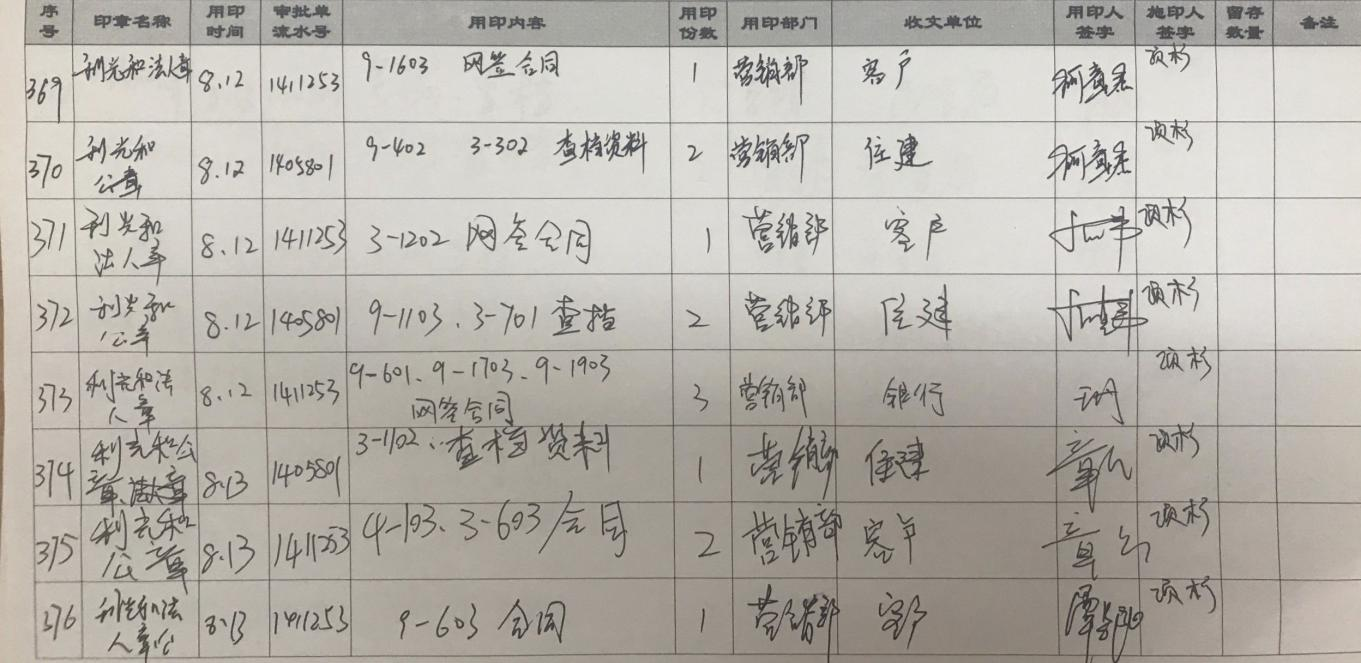 序号 印章名称 用印时间 审批单流水号 用印内容 用印份数 用印部门 收文单位 用印人签字 施印人签字 留存数量 备注
369 利光和法人章 8.12 1411253 9-1603 网签合同 1 营销部 客户 项杉
370 利光和公章 8.12 1405801 9-402 3-302 查档资料 2 营销部 住建 项杉
371 利光和法人章 8.12 1411253 3-1202 网签合同 1 营销部 客户 项杉
372 利光和公章 8.12 1405801 9-1103、3-701 查档 2 营销部 住建 项杉
373 利光和法人章 8.12 1411253 9-601、9-1703、9-1903 网签合同 3 营销部 银行 项杉
374 利光和公章、法人章 8.13 1405801 3-1102 查档资料 1 营销部 住建 项杉
375 利光和公章 8.13 1411253 4-103、3-603 合同 2 营销部 客户 项杉
376 利光和法人章 8.13 1411253 9-603 合同 1 营销部 客户 项杉